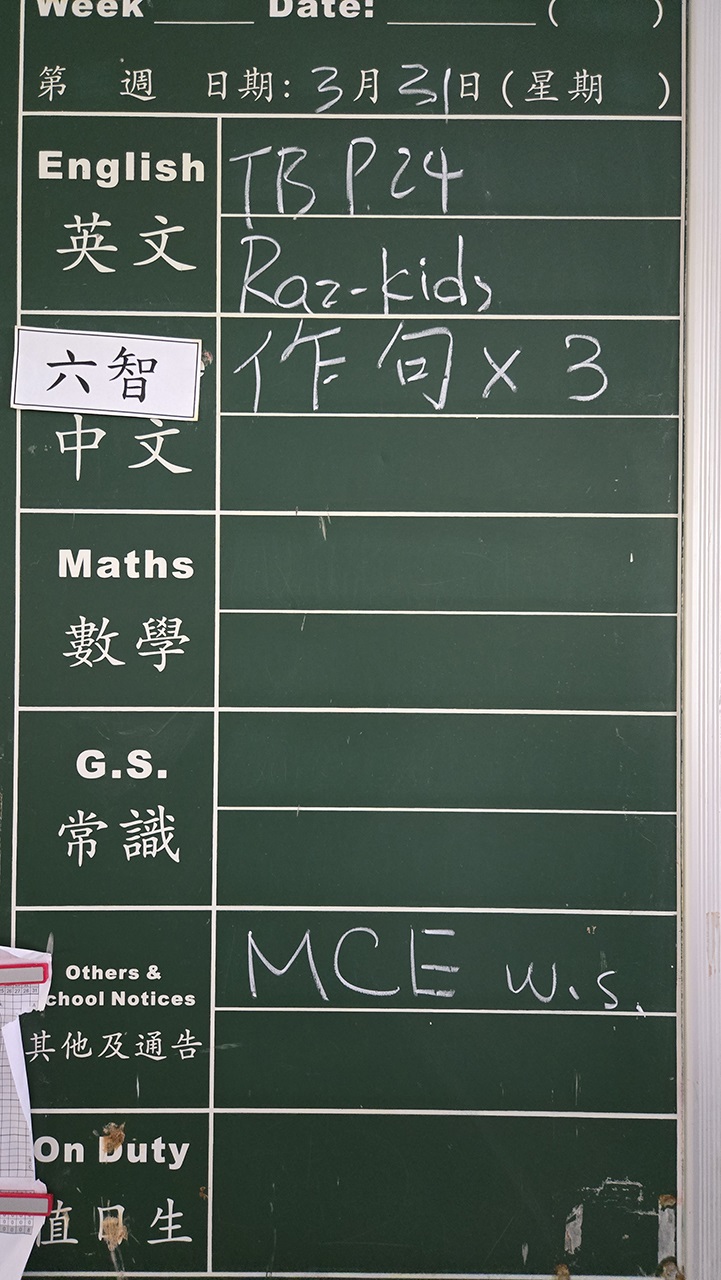 Week ____ Date: ______ ( )
第 週 日期: 3月31日 (星期 )
English
英文
TB P.24
Raz-kids
六智
中文
作句 x 3
Maths
數學
G.S.
常識
Others &
School Notices
其他及通告
MCE w.s.
On Duty
值日生